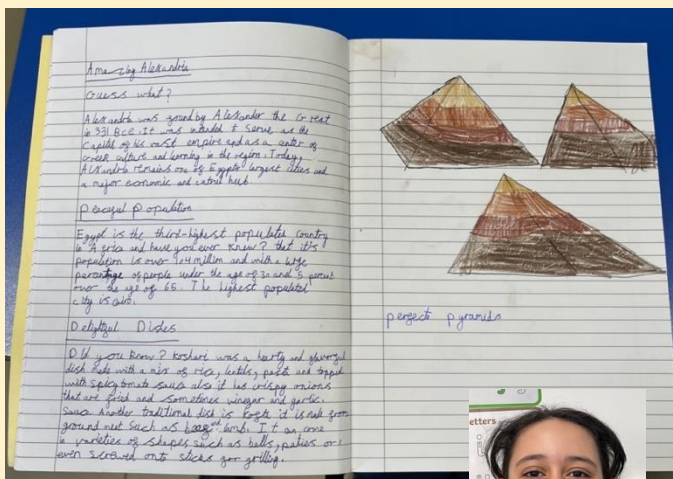 Amazing Alexandria
Guess what?
Alexandria was found by Alexander the Great
in 331 BCE. It was intended to serve as the
capital of his vast empire and as a center of
Greek culture and learning in the region. Today,
Alexandria remains one of Egypts largest cities and
a major economic and hub.
Peaceful Population
Egypt is the third-highest populated country
in Africa and have you ever knew? that it's
population is over 104 million and with a large
percentage of people under the age of 30 and 5 percent
over the age of 65. The highest populated
city is
Delightful Dishes
Did you know? Koshari was a hearty and
dish made with a mix of rice, lentils, and topped
with spicy tomato also it has crispy onions
that are fried and sometimes vinegar and garlic.
Another traditional dish is it is made from
ground meat such as and lamb. It can come
in varieties of shapes such as balls, patties or
even screwed onto sticks for grilling.
perfect pyramids
etters